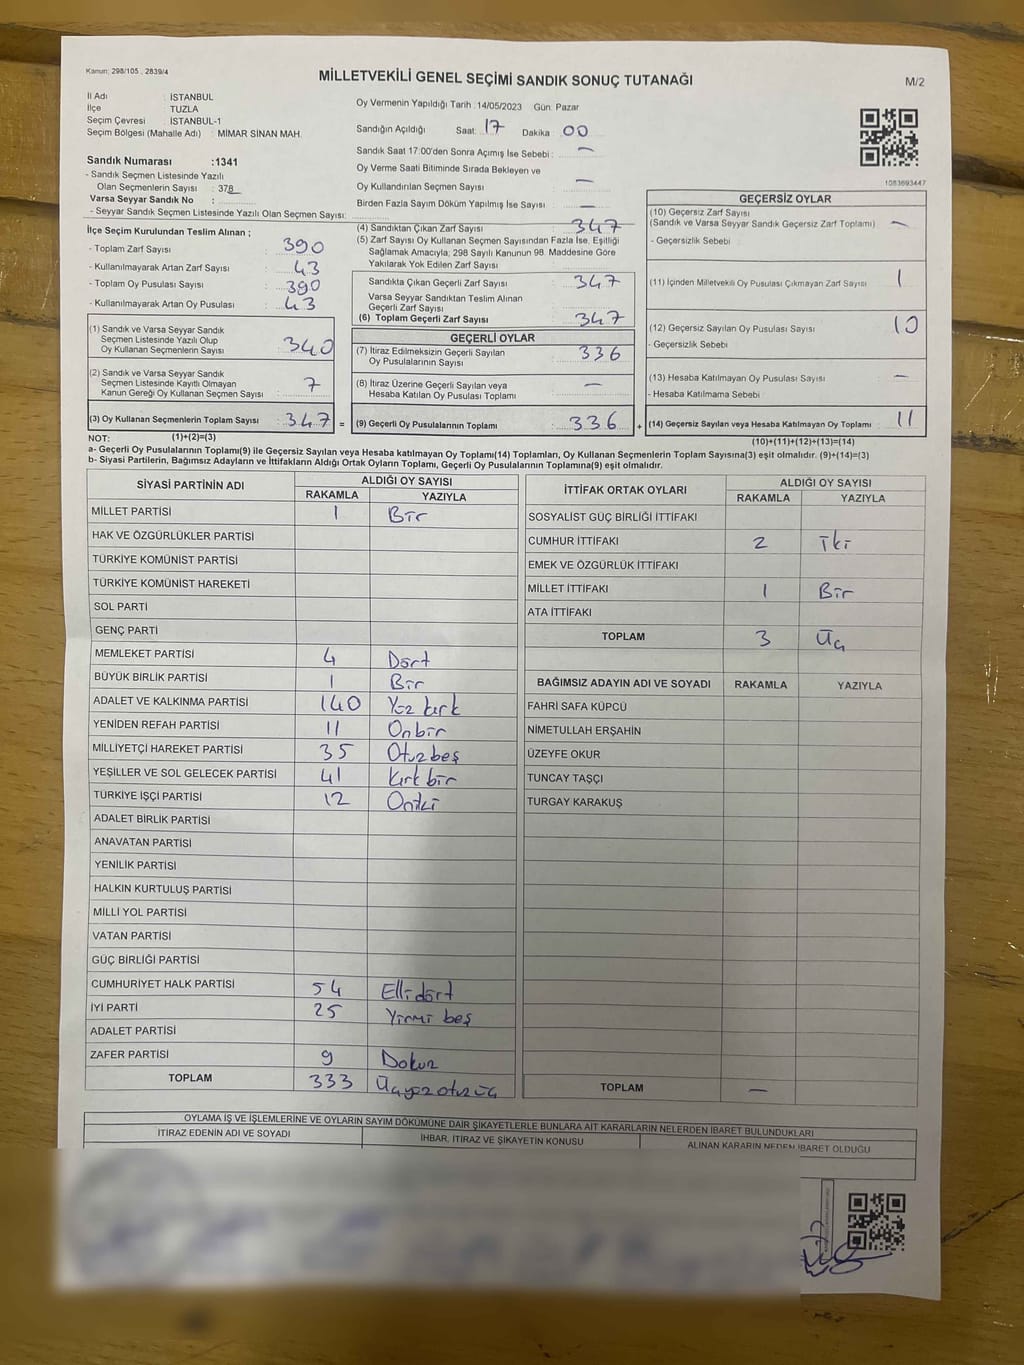 Kanun: 298/105 , 2839/4
MİLLETVEKİLİ GENEL SEÇİMİ SANDIK SONUÇ TUTANAĞI
M/2
İl Adı : İSTANBUL
İlçe : TUZLA
Seçim Çevresi : İSTANBUL-1
Seçim Bölgesi (Mahalle Adı) : MİMAR SİNAN MAH.
Sandık Numarası :1341
- Sandık Seçmen Listesinde Yazılı
Olan Seçmenlerin Sayısı : 378
Varsa Seyyar Sandık No :
- Seyyar Sandık Seçmen Listesinde Yazılı Olan Seçmen Sayısı:
Oy Vermenin Yapıldığı Tarih : 14/05/2023 Gün: Pazar
Sandığın Açıldığı Saat: 17 Dakika 00
Sandık Saat 17:00'den Sonra Açımış İse Sebebi : —
Oy Verme Saati Bitiminde Sırada Bekleyen ve
Oy Kullandırılan Seçmen Sayısı —
Birden Fazla Sayım Döküm Yapılmış İse Sayısı : —
1083693447
İlçe Seçim Kurulundan Teslim Alınan ;
- Toplam Zarf Sayısı : 390
- Kullanılmayarak Artan Zarf Sayısı : 43
- Toplam Oy Pusulası Sayısı : 390
- Kullanılmayarak Artan Oy Pusulası : 43
(1) Sandık ve Varsa Seyyar Sandık
Seçmen Listesinde Yazılı Olup
Oy Kullanan Seçmenlerin Sayısı : 340
(2) Sandık ve Varsa Seyyar Sandık
Seçmen Listesinde Kayıtlı Olmayan
Kanun Gereği Oy Kullanan Seçmen Sayısı : 7
(3) Oy Kullanan Seçmenlerin Toplam Sayısı : 347 =
(4) Sandıktan Çıkan Zarf Sayısı : 347
(5) Zarf Sayısı Oy Kullanan Seçmen Sayısından Fazla İse, Eşitliği
Sağlamak Amacıyla; 298 Sayılı Kanunun 98. Maddesine Göre
Yakılarak Yok Edilen Zarf Sayısı :
Sandıkta Çıkan Geçerli Zarf Sayısı : 347
Varsa Seyyar Sandıktan Teslim Alınan
Geçerli Zarf Sayısı :
(6) Toplam Geçerli Zarf Sayısı : 347
GEÇERLİ OYLAR
(7) İtiraz Edilmeksizin Geçerli Sayılan
Oy Pusulalarının Sayısı : 336
(8) İtiraz Üzerine Geçerli Sayılan veya
Hesaba Katılan Oy Pusulası Toplamı : —
(9) Geçerli Oy Pusulalarının Toplamı : 336 +
GEÇERSİZ OYLAR
(10) Geçersiz Zarf Sayısı
(Sandık ve Varsa Seyyar Sandık Geçersiz Zarf Toplamı) : —
- Geçersizlik Sebebi :
(11) İçinden Milletvekili Oy Pusulası Çıkmayan Zarf Sayısı : 1
(12) Geçersiz Sayılan Oy Pusulası Sayısı : 10
- Geçersizlik Sebebi :
(13) Hesaba Katılmayan Oy Pusulası Sayısı : —
- Hesaba Katılmama Sebebi :
(14) Geçersiz Sayılan veya Hesaba Katılmayan Oy Toplamı : 11
NOT: (1)+(2)=(3)
(10)+(11)+(12)+(13)=(14)
a- Geçerli Oy Pusulalarının Toplamı(9) ile Geçersiz Sayılan veya Hesaba Katılmayan Oy Toplamı(14) Toplamları, Oy Kullanan Seçmenlerin Toplam Sayısına(3) eşit olmalıdır. (9)+(14)=(3)
b- Siyasi Partilerin, Bağımsız Adayların ve İttifakların Aldığı Ortak Oyların Toplamı, Geçerli Oy Pusulalarının Toplamına(9) eşit olmalıdır.
SİYASİ PARTİNİN ADI ALDIĞI OY SAYISI
RAKAMLA YAZIYLA
MİLLET PARTİSİ 1 Bir
HAK VE ÖZGÜRLÜKLER PARTİSİ
TÜRKİYE KOMÜNİST PARTİSİ
TÜRKİYE KOMÜNİST HAREKETİ
SOL PARTİ
GENÇ PARTİ
MEMLEKET PARTİSİ 4 Dört
BÜYÜK BİRLİK PARTİSİ 1 Bir
ADALET VE KALKINMA PARTİSİ 140 Yüz kırk
YENİDEN REFAH PARTİSİ 11 Onbir
MİLLİYETÇİ HAREKET PARTİSİ 35 Otuzbeş
YEŞİLLER VE SOL GELECEK PARTİSİ 41 Kırk bir
TÜRKİYE İŞÇİ PARTİSİ 12 Oniki
ADALET BİRLİK PARTİSİ
ANAVATAN PARTİSİ
YENİLİK PARTİSİ
HALKIN KURTULUŞ PARTİSİ
MİLLİ YOL PARTİSİ
VATAN PARTİSİ
GÜÇ BİRLİĞİ PARTİSİ
CUMHURİYET HALK PARTİSİ 54 Elli dört
İYİ PARTİ 25 Yirmi beş
ADALET PARTİSİ
ZAFER PARTİSİ 9 Dokuz
TOPLAM 333 Üçyüzotuzüç
İTTİFAK ORTAK OYLARI ALDIĞI OY SAYISI
RAKAMLA YAZIYLA
SOSYALİST GÜÇ BİRLİĞİ İTTİFAKI
CUMHUR İTTİFAKI 2 İki
EMEK VE ÖZGÜRLÜK İTTİFAKI
MİLLET İTTİFAKI 1 Bir
ATA İTTİFAKI
TOPLAM 3 Üç
BAĞIMSIZ ADAYIN ADI VE SOYADI RAKAMLA YAZIYLA
FAHRİ SAFA KÜPCÜ
NİMETULLAH ERŞAHİN
ÜZEYFE OKUR
TUNCAY TAŞÇI
TURGAY KARAKUŞ
TOPLAM —
OYLAMA İŞ VE İŞLEMLERİNE VE OYLARIN SAYIM DÖKÜMÜNE DAİR ŞİKAYETLERLE BUNLARA AİT KARARLARIN NELERDEN İBARET BULUNDUKLARI
İTİRAZ EDENİN ADI VE SOYADI İHBAR, İTİRAZ VE ŞİKAYETİN KONUSU ALINAN KARARIN NEDEN İBARET OLDUĞU